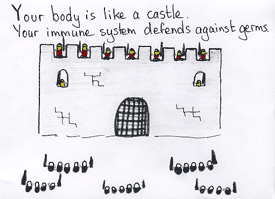 Your body is like a castle.
Your immune system defends against germs.